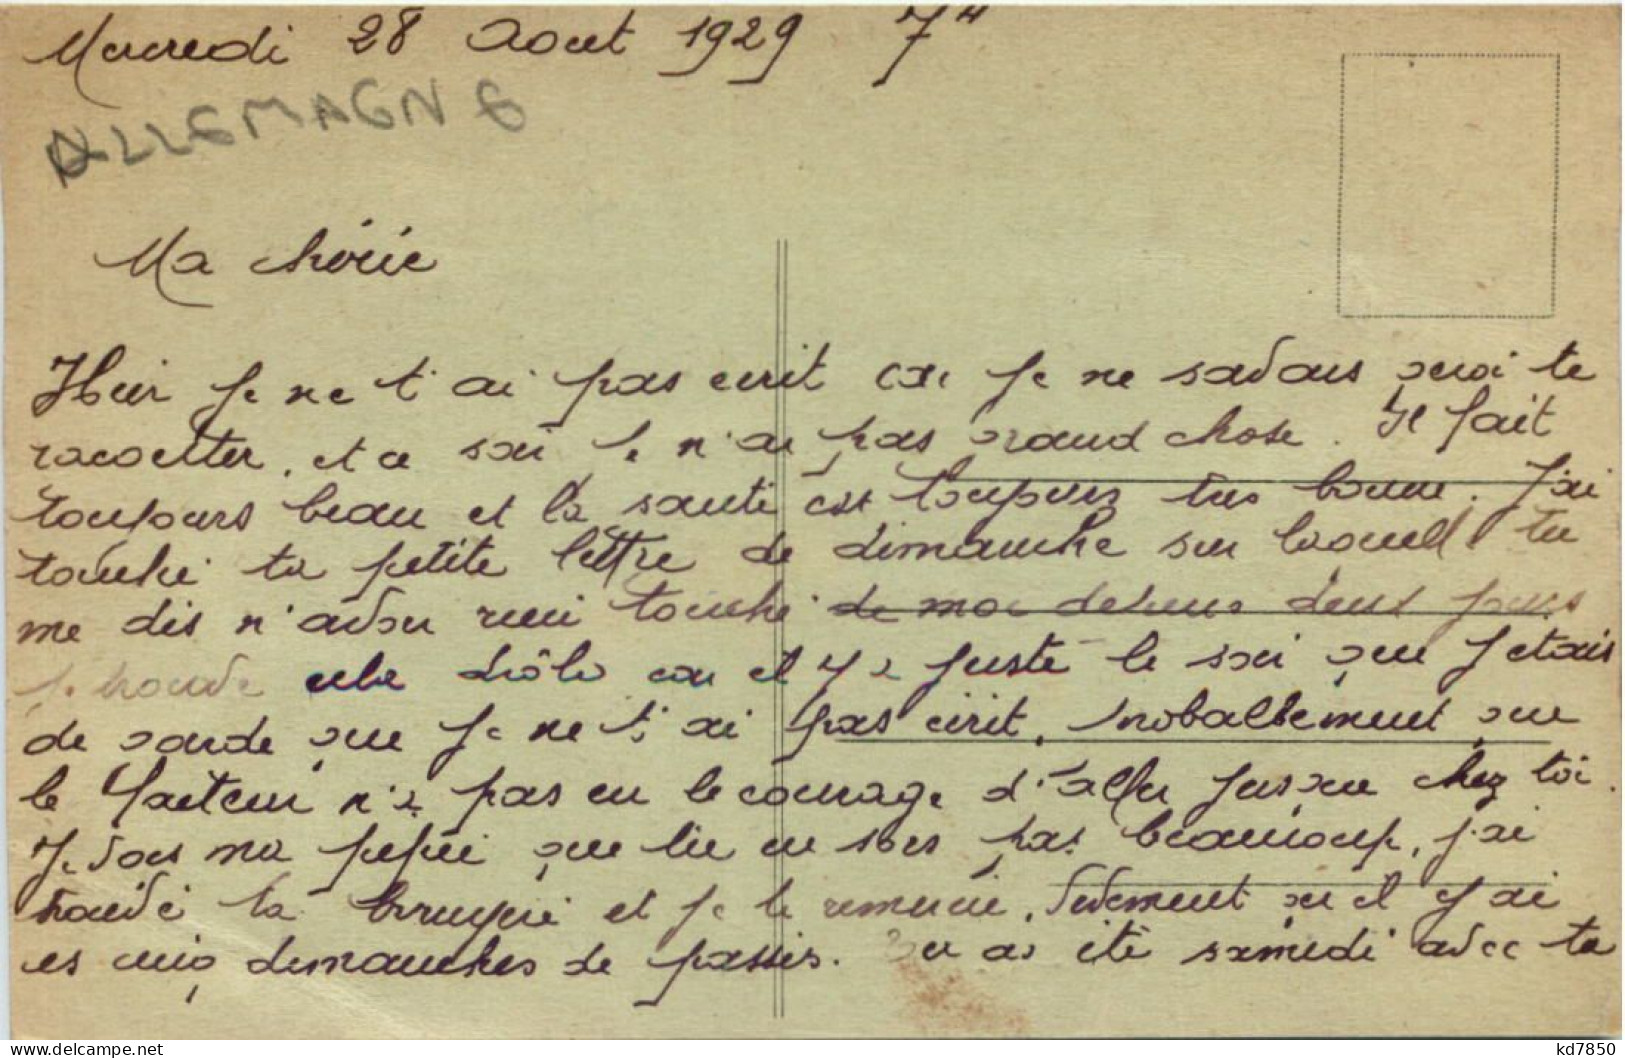 Mercredi 28 Aout 1929 7H
ALLEMAGNE
Ma chérie
Hier je ne t'ai pas ecrit car je ne savais quoi te
racontter, et ce soir je n'ai pas grand chose. Il fait
toujours beau et la santé est toujours tres bonne. J'ai
touché ta petite lettre de dimanche sur laquell tu
me dis n'avoir rien touché de moi depuis deux jours
je trouve cela drôle car il y a juste le soir que j etais
de garde que je ne t'ai pas ecrit, probablement que
le facteur n'a pas eu le courage d'aller jusque chez toi.
Je vois ma que tu en sors pas beaucoup, j'ai
trouvé la et je te remercie, vivement qu il y ai
ces cinq dimanches de passés. Tu as été samedi avec ta
kd7850